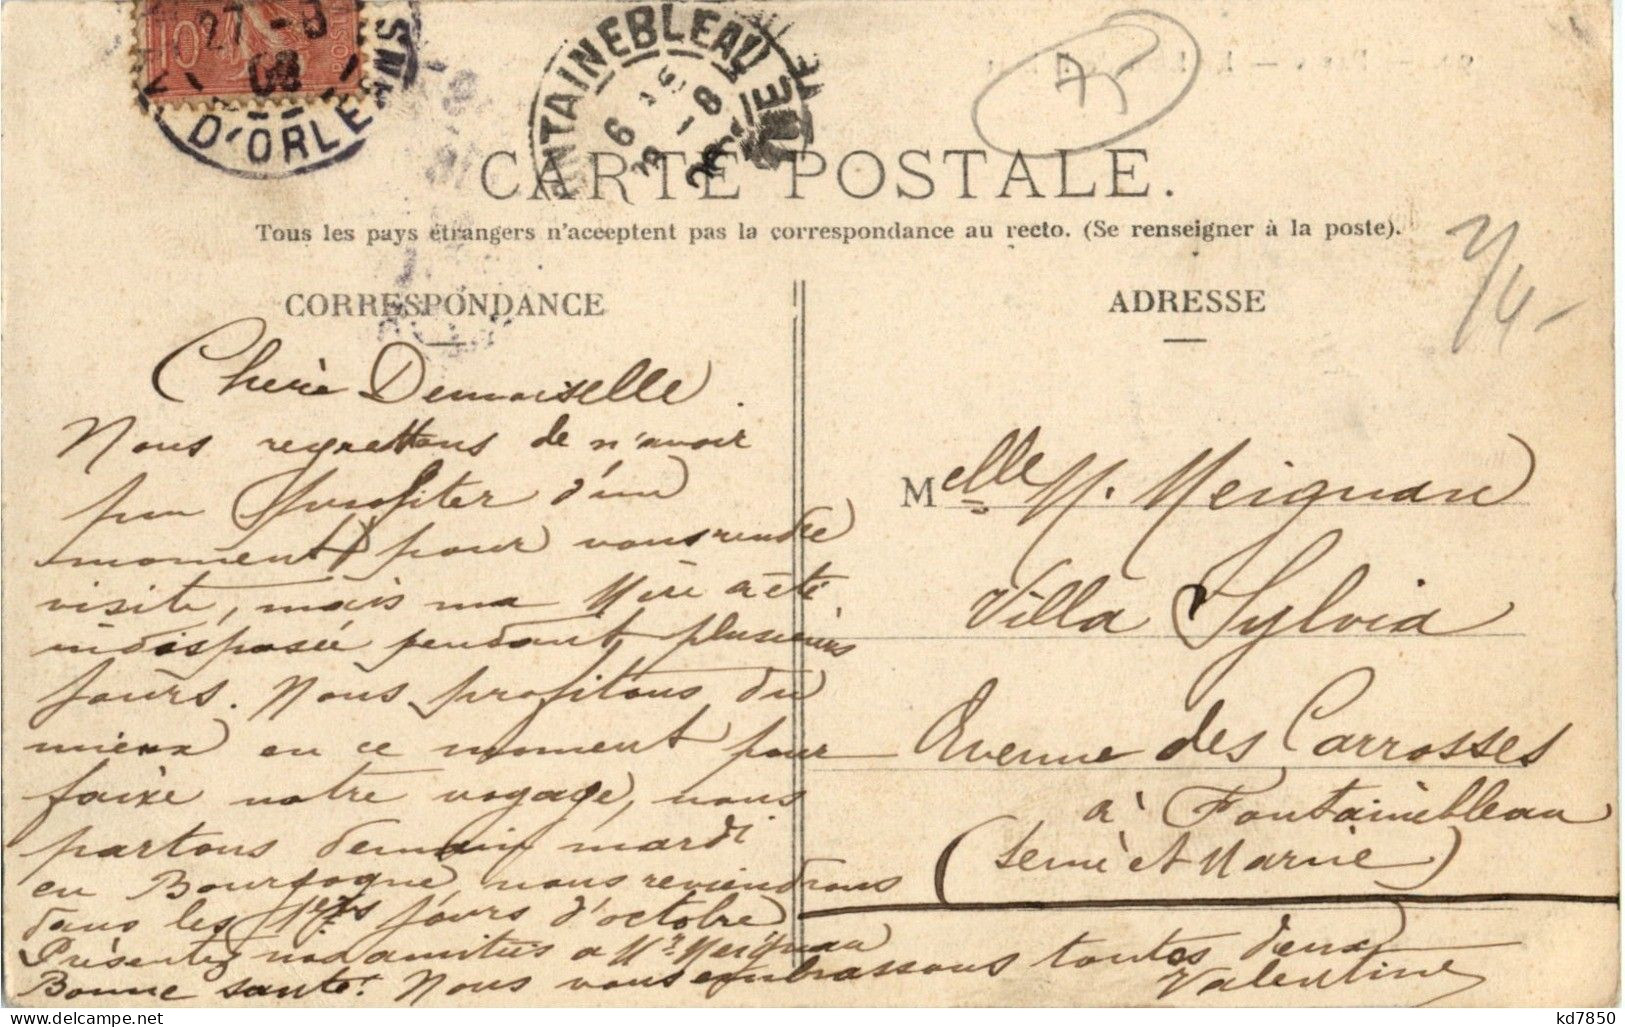 10c
POSTES
27 - 8
08
D'ORLEANS
FONTAINEBLEAU
6
28 - 8
CARTE POSTALE.
Tous les pays étrangers n'acceptent pas la correspondance au recto. (Se renseigner à la poste).
CORRESPONDANCE
Chérie Demoiselle.
Nous regrettons de n'avoir
pu profiter d'un
moment pour vous rendre
visite, mais ma Mère a été
indisposée pendant plusieurs
jours. Nous profitons du
mieux en ce moment pour
faire notre voyage, nous
partons demain mardi
en Bourgogne, nous reviendrons
dans les 1ers jours d'octobre
Présentez nos amitiés a Mr Meignan
Bonne santé. Nous vous embrassons toutes deux
Valentine
ADRESSE
Melle M. Meignan
Villa Sylvia
Avenue des Carrosses
à Fontainebleau
(Seine et Marne)
kd7850